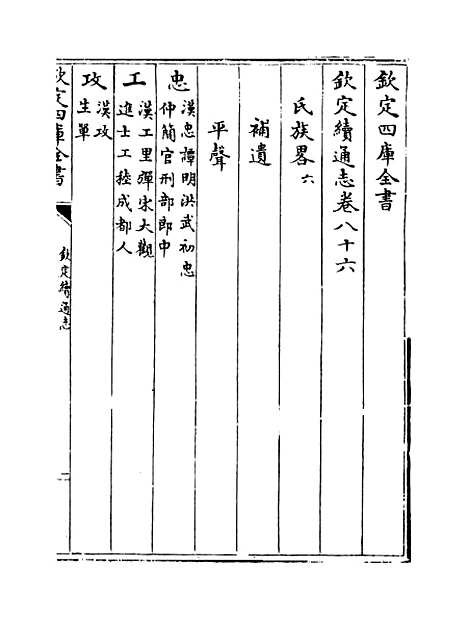 欽定四庫全書
欽定續通志卷八十六
氏族畧六
補遺
平聲
忠漢忠譚明洪武初忠仲簡官刑部郎中
工漢工里彈宋大觀進士工稑成都人
攻漢攻生單
欽定四庫全書
欽定續通志